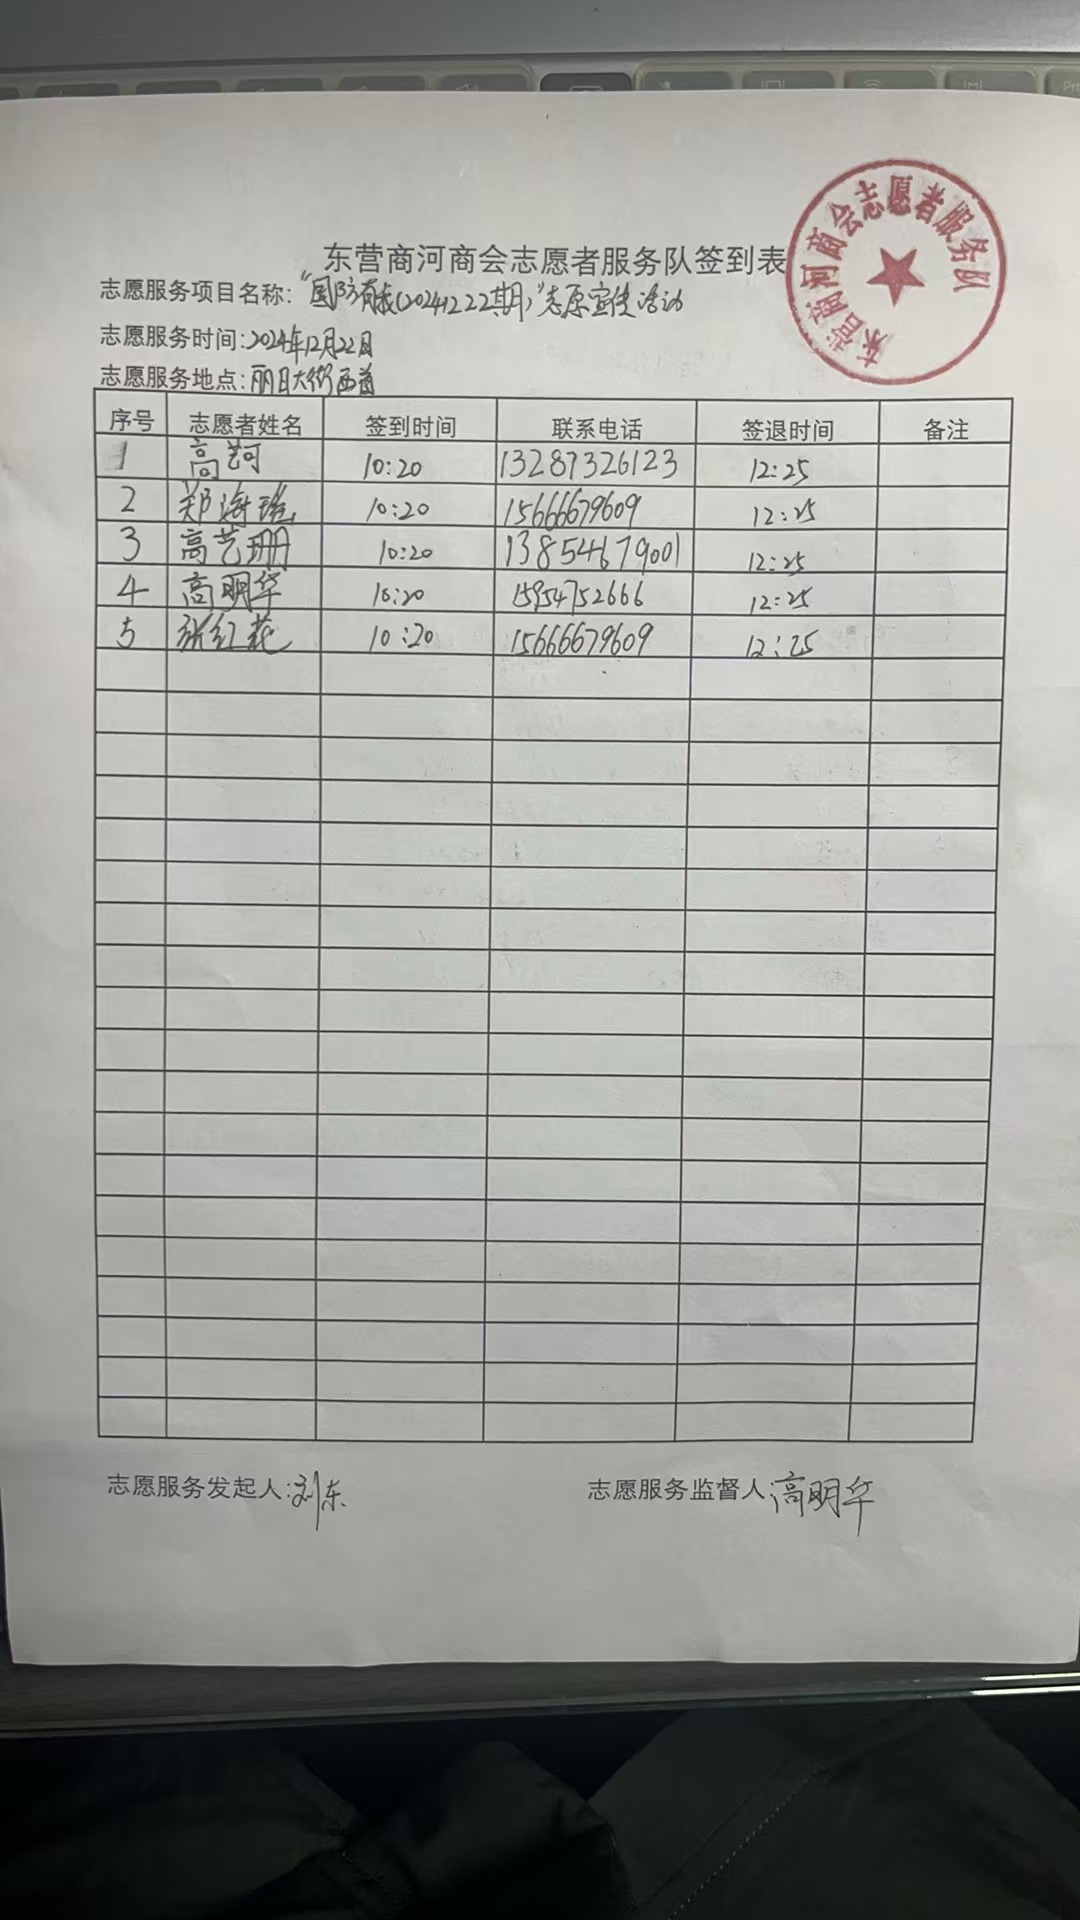 东营商河商会志愿者服务队
东营商河商会志愿者服务队签到表
志愿服务项目名称:“国防有我(20241222期)”志愿宣传活动
志愿服务时间:2024年12月22日
志愿服务地点:丽日大街西首
序号 志愿者姓名 签到时间 联系电话 签退时间 备注
1 高珂 10:20 13287326123 12:25
2 郑海瑶 10:20 15666679609 12:25
3 高艺珊 10:20 13854679001 12:25
4 高明华 10:20 15954752666 12:25
5 张红花 10:20 15666679609 12:25
志愿服务发起人:刘东 志愿服务监督人:高明华